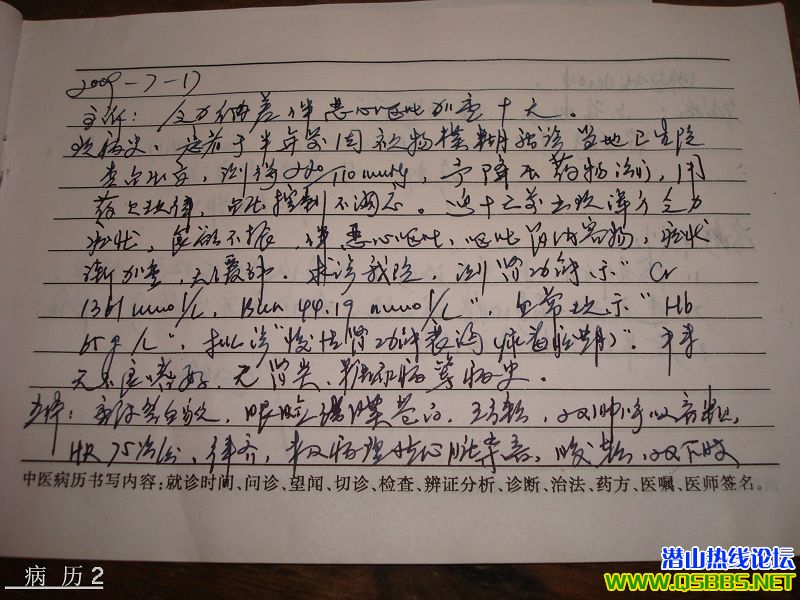 2009-7-17
主诉：乏力纳差伴恶心呕吐加重十天。
现病史：患者于半年前因视物模糊就诊当地卫生院
查血压高，测得220/110mmHg，予降压药物治疗，用
药不规律，血压控制不满意。近十天前出现浑身乏力
症状，食欲不振，伴恶心呕吐，呕吐胃内容物，症状
渐加重，求诊我院 测肾功能示"Cr
1361 umol/L，Bun 44.19 mmol/L"，血常规示"Hb
65g/L"，拟诊"慢性肾功能衰竭（尿毒症期）"。平素
无不良嗜好，无肾炎、糖尿病等病史。
查体：眼睑结膜苍白，双肺呼吸音粗，
HR 75次/分，律齐，未及病理性心脏杂音，腹软，双下肢
中医病历书写内容：就诊时间、问诊、望闻、切诊、检查、辨证分析、诊断、治法、药方、医嘱、医师签名。
病 历 2
潜山热线论坛
WWW.QSBBS.NET